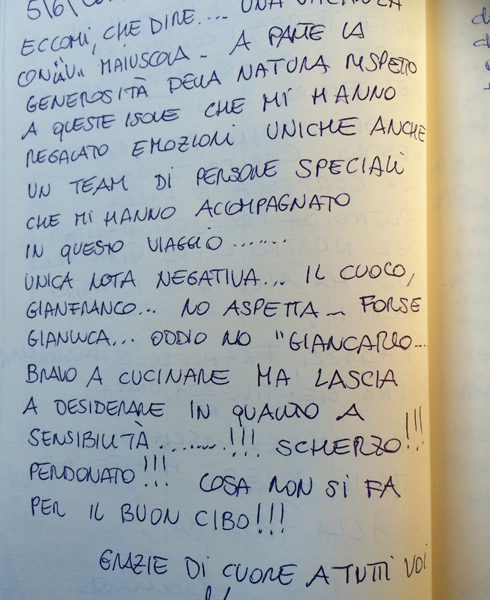 5/6/
ECCOMI, CHE DIRE.... UNA VACANZA
CON "V" MAIUSCOLA - A PARTE LA
GENEROSITÀ DELLA NATURA RISPETTO
A QUESTE ISOLE CHE MI HANNO
REGALATO EMOZIONI UNICHE ANCHE
UN TEAM DI PERSONE SPECIALI
CHE MI HANNO ACCOMPAGNATO
IN QUESTO VIAGGIO.......
UNICA NOTA NEGATIVA... IL CUOCO,
GIANFRANCO... NO ASPETTA... FORSE
GIANLUCA... ODDIO NO "GIANCARLO...
BRAVO A CUCINARE MA LASCIA
A DESIDERARE IN QUANTO A
SENSIBILITÀ........!!! SCHERZO!!!
PERDONATO!!! COSA NON SI FA
PER IL BUON CIBO!!!
GRAZIE DI CUORE A TUTTI VOI